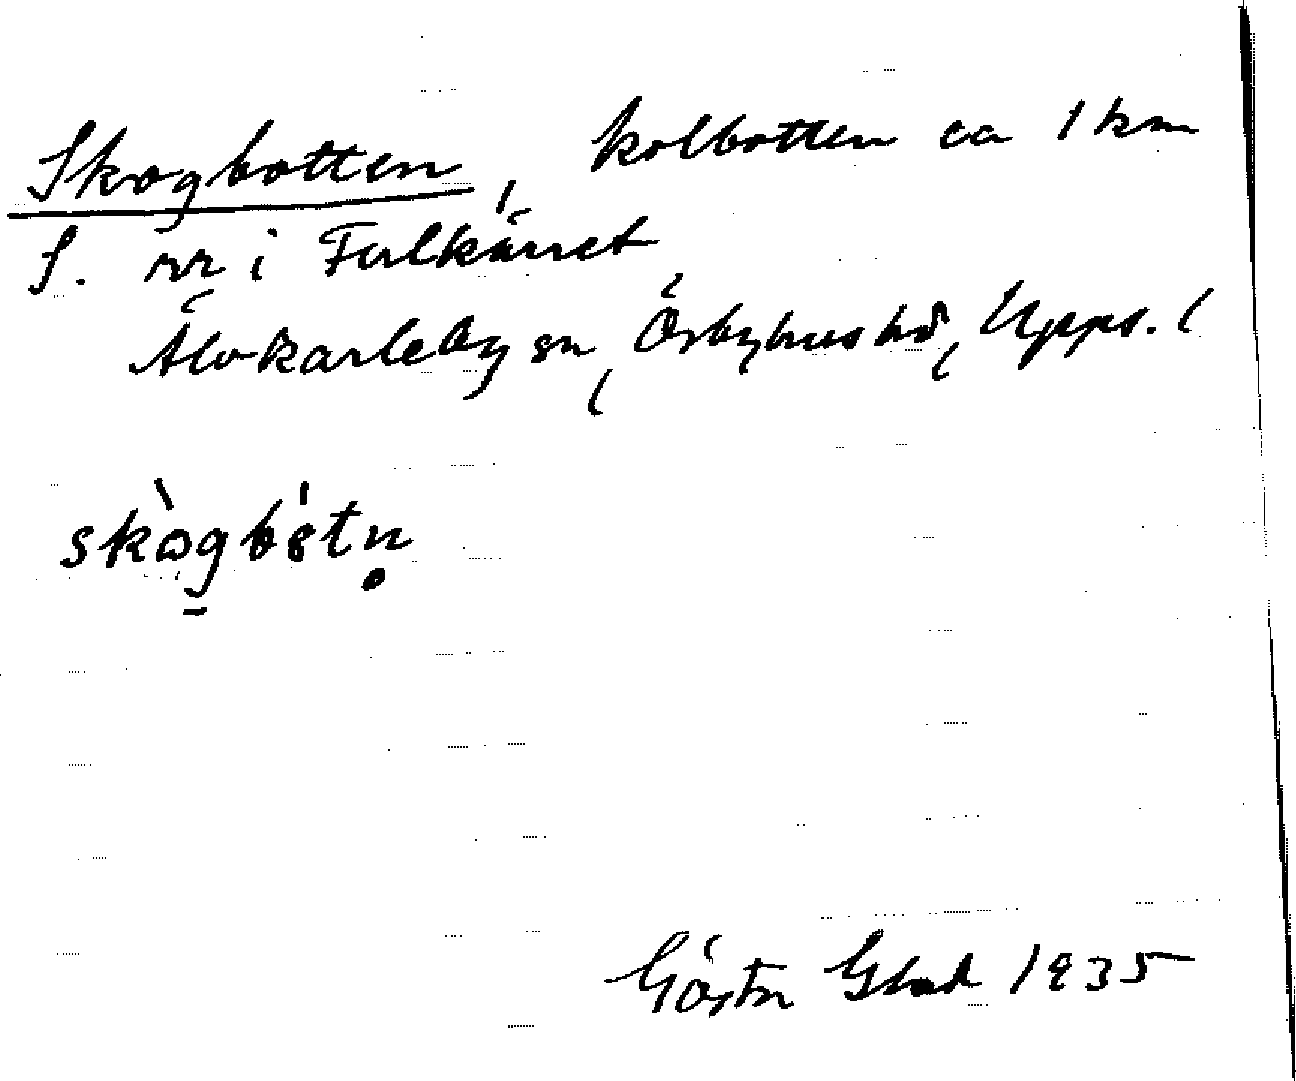 Skogbotten, kolbotten ca 1 km
S. nr i Fulkärret
Älvkarleby sn, Örbyhus hd, Upps. l
skògbòtn̥
Gösta Glad 1935